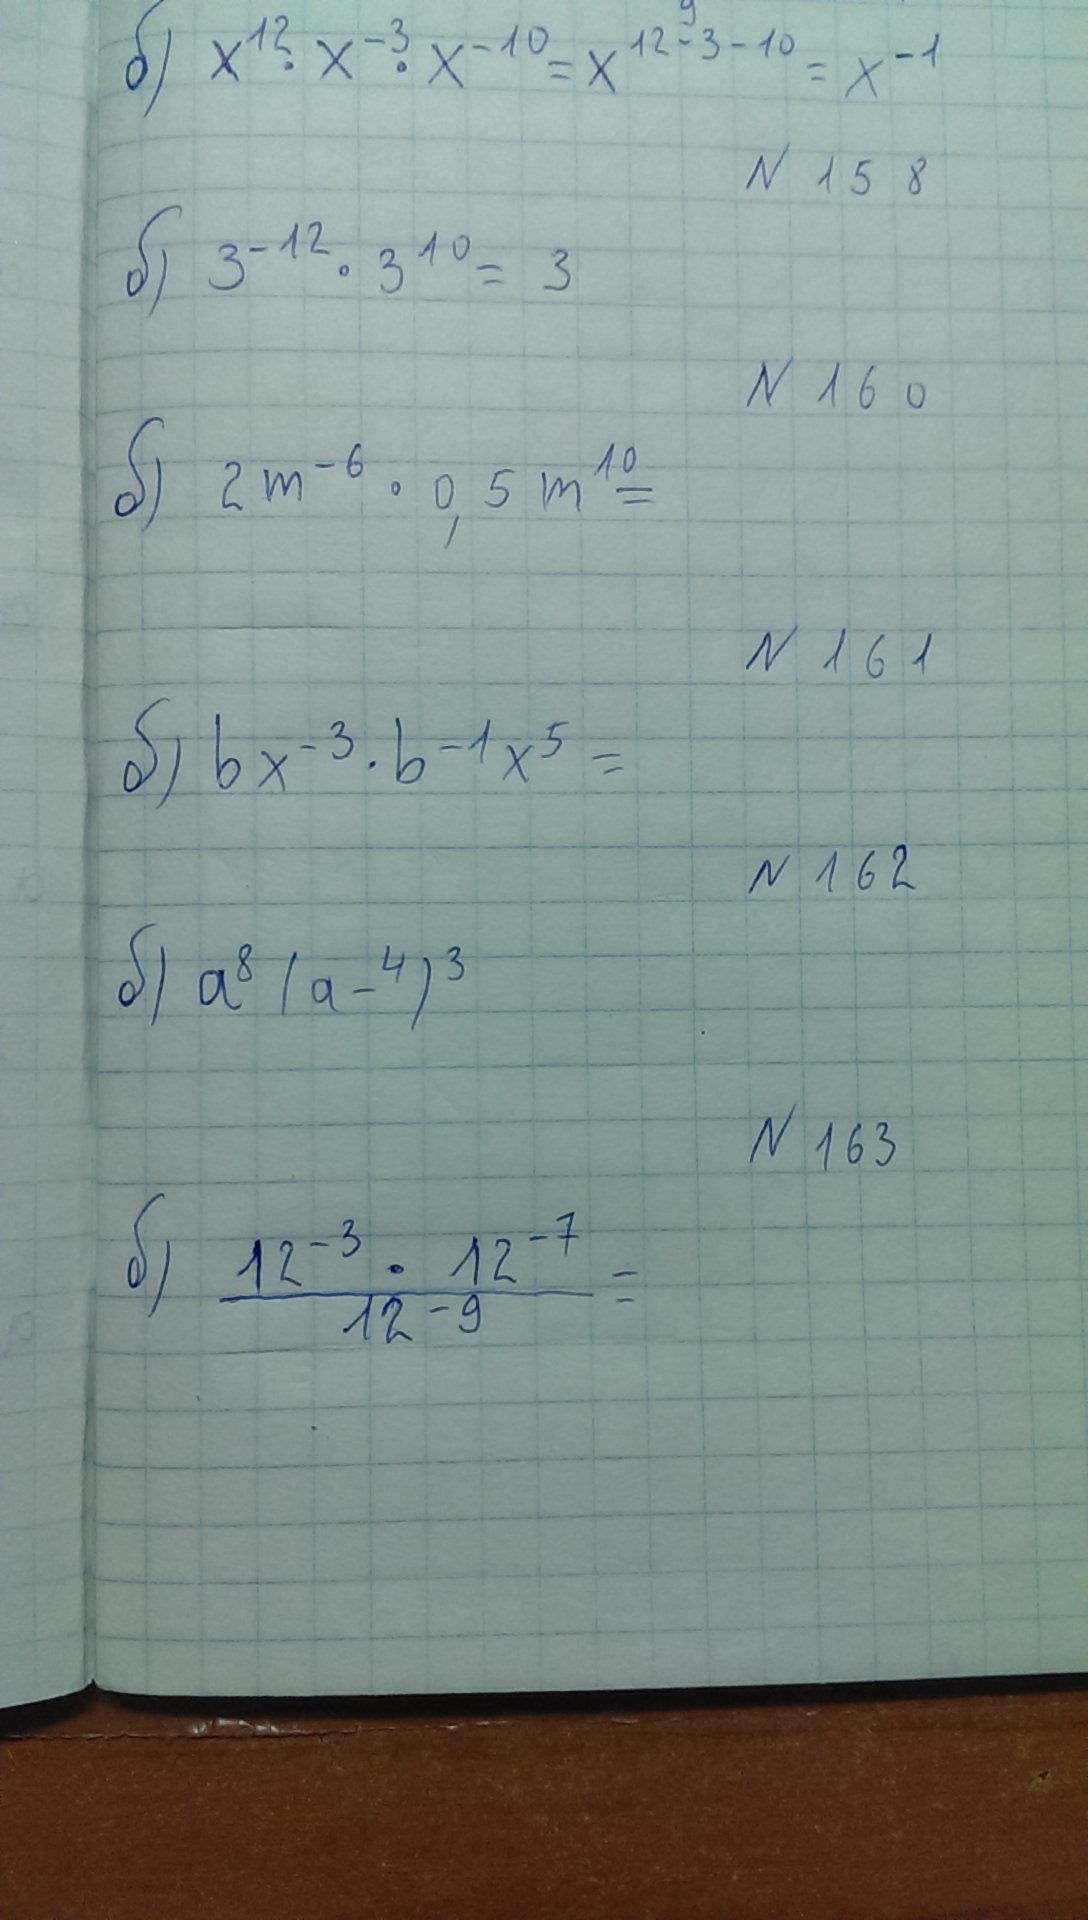 б) x¹² · x⁻³ · x⁻¹⁰ = x¹²⁻³⁻¹⁰ = x⁻¹
N 158
б) 3⁻¹² · 3¹⁰ = 3
N 160
б) 2m⁻⁶ · 0,5m¹⁰ =
N 161
б) bx⁻³ · b⁻¹x⁵ =
N 162
б) a⁸ (a⁻⁴)³
N 163
б) 12⁻³ · 12⁻⁷ =
12⁻⁹